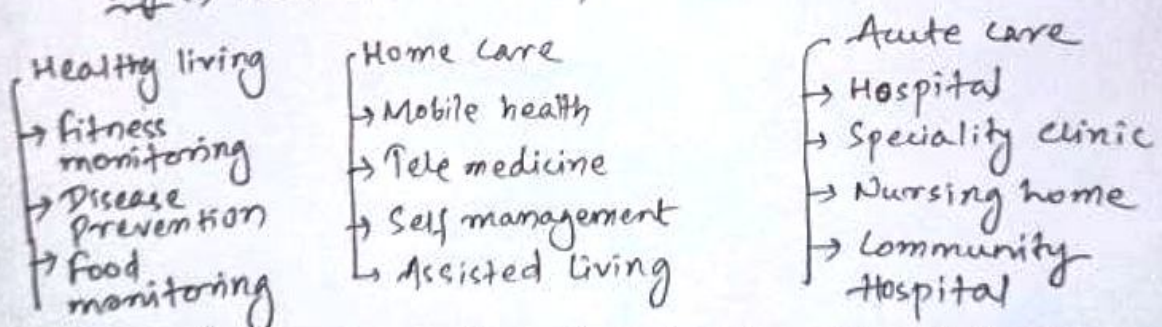 Healthy living
→ fitness
monitoring
→ Disease
prevention
→ food
monitoring
Home care
→ Mobile health
→ Tele medicine
→ Self management
→ Assisted living
Acute care
→ Hospital
→ Speciality clinic
→ Nursing home
→ Community
Hospital